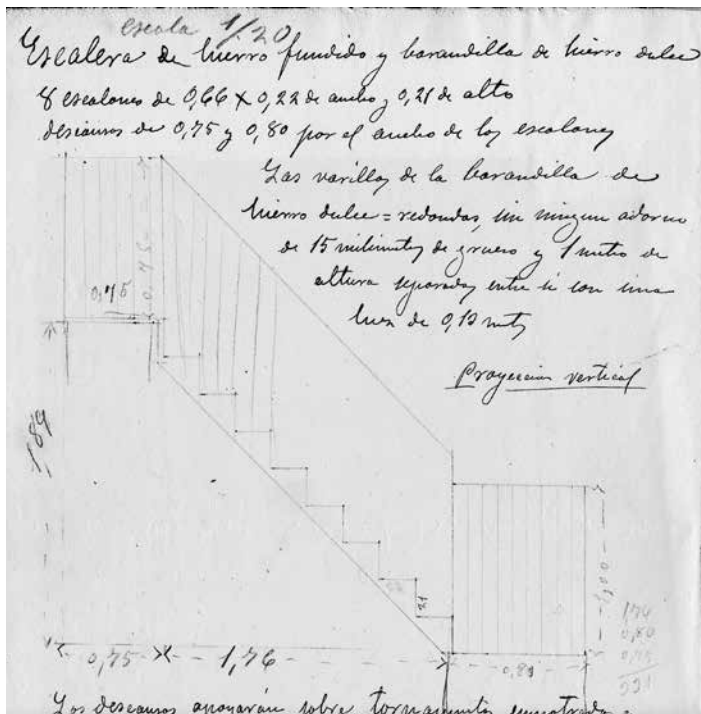 escala 1/20
Escalera de hierro fundido y barandilla de hierro dulce
8 escalones de 0,66 X 0,22 de ancho y 0,21 de alto
descansos de 0,75 y 0,80 por el ancho de los escalones
Las varillas de la barandilla de
hierro dulce = redondas, sin ningun adorno
de 15 milimets de grueso y 1 metro de
altura separadas entre si con una
luz de 0,13 mts
0,75
0,75
Proyeccion vertical
1,89
21
1,00
0,75
1,76
0,80
Los descansos apoyarán sobre